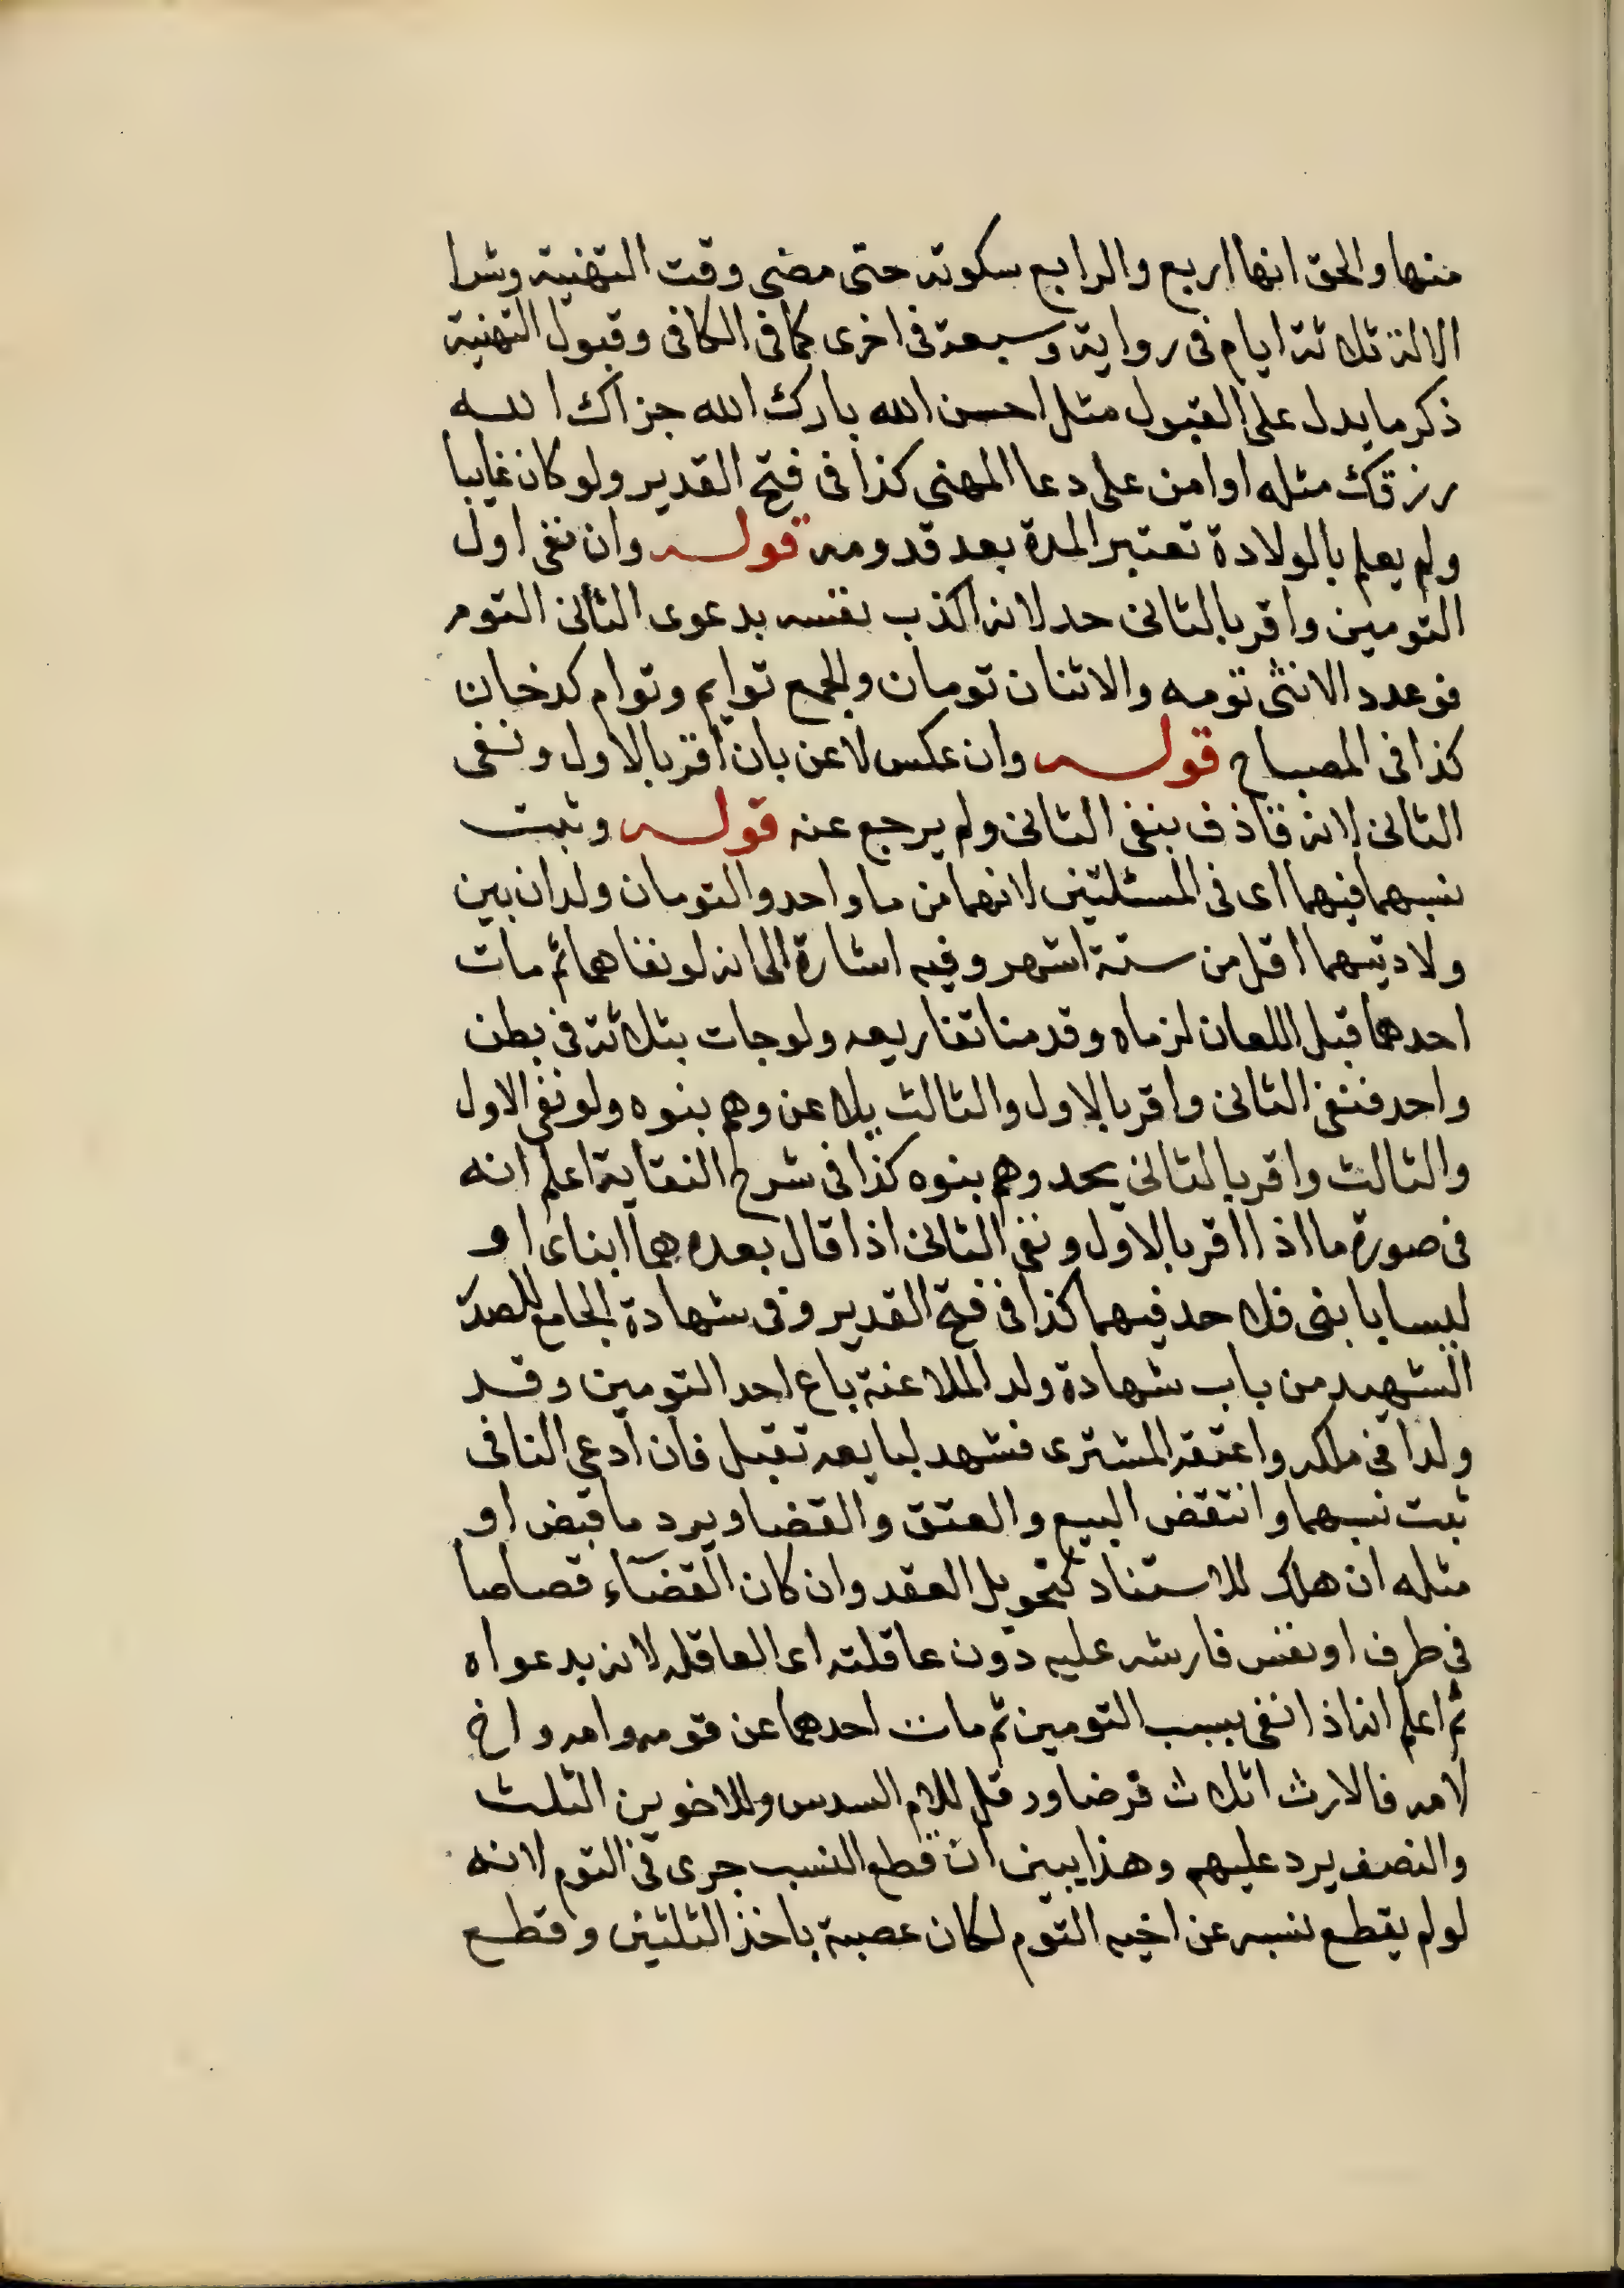 منها والحق انها اربع والرابع سكوته حتى مضى وقت التهنية وشرا
الالة ثلاثة ايام فى رواية وسبعة فى اخرى كما فى الكافى وقبول التهنية
ذكر ما يدل على القبول مثل احسن الله بارك الله جزاك الله
رزقك مثله او امن على دعا المهنى كذا فى فتح القدير ولو كان غايبا
ولم يعلم بالولادة تعتبر المدة بعد قدومه قوله وان نفى اول
التومين واقر بالثانى حد لانه اكذب نفسه بدعوى الثانى التوم
فوعدد الانثى تومه والاثنان تومان والجمع توايم وتوام كدخان
كذا فى المصباح قوله وان عكس لاعن بان اقر بالاول ونفى
الثانى لانه قاذف بنفى الثانى ولم يرجع عنه قوله وثبت
نسبهما فيهما اى فى المسئلتين لانهما من ما واحد والتومان ولدان بين
ولادتيهما اقل من ستة اشهر وفيه اشارة الى انه لو نفاهما ثم مات
احدهما قبل اللعان لزماه وقدمنا تفاريعه ولو جات بثلاثة فى بطن
واحد فنفى الثانى واقر بالاول والثالث يلاعن وهم بنوه ولو نفى الاول
والثالث واقر بالثانى يحد وهم بنوه كذا فى شرح النقاية اعلم انه
فى صورة ما اذا اقر بالاول ونفى الثانى اذا قال بعده هما ابناى او
ليسا بابنى فلا حد فيهما كذا فى فتح القدير وفى شهادة الجامع للصدر
الشهيد من باب شهادة ولد الملاعنة باع احد التومين وقد
ولدا فى ملكه واعتقه المشترى فشهد لبايعه تقبل فان ادعى النافى
ثبت نسبهما وانتقض البيع والعتق والقضا ويرد ما قبض او
مثله ان هلك للاستناد كتحويل العقد وان كان القضآء قصاصا
فى طرف او نفس فارشه عليه دون عاقلته اى العاقله لانه بدعواه
ثم اعلم انه اذا نفى بسبب التومين ثم مات احدهما عن قومه وامه واخ
لامه فالارث اثلاث فرضا ورد قل للام السدس وللاخوين الثلث
والنصف يرد عليهم وهذا يبين ان قطع النسب جرى فى التوم لانه
لو لم يقطع نسبه عن اخيه التوم لكان عصبة ياخذ الثلثين وقطع